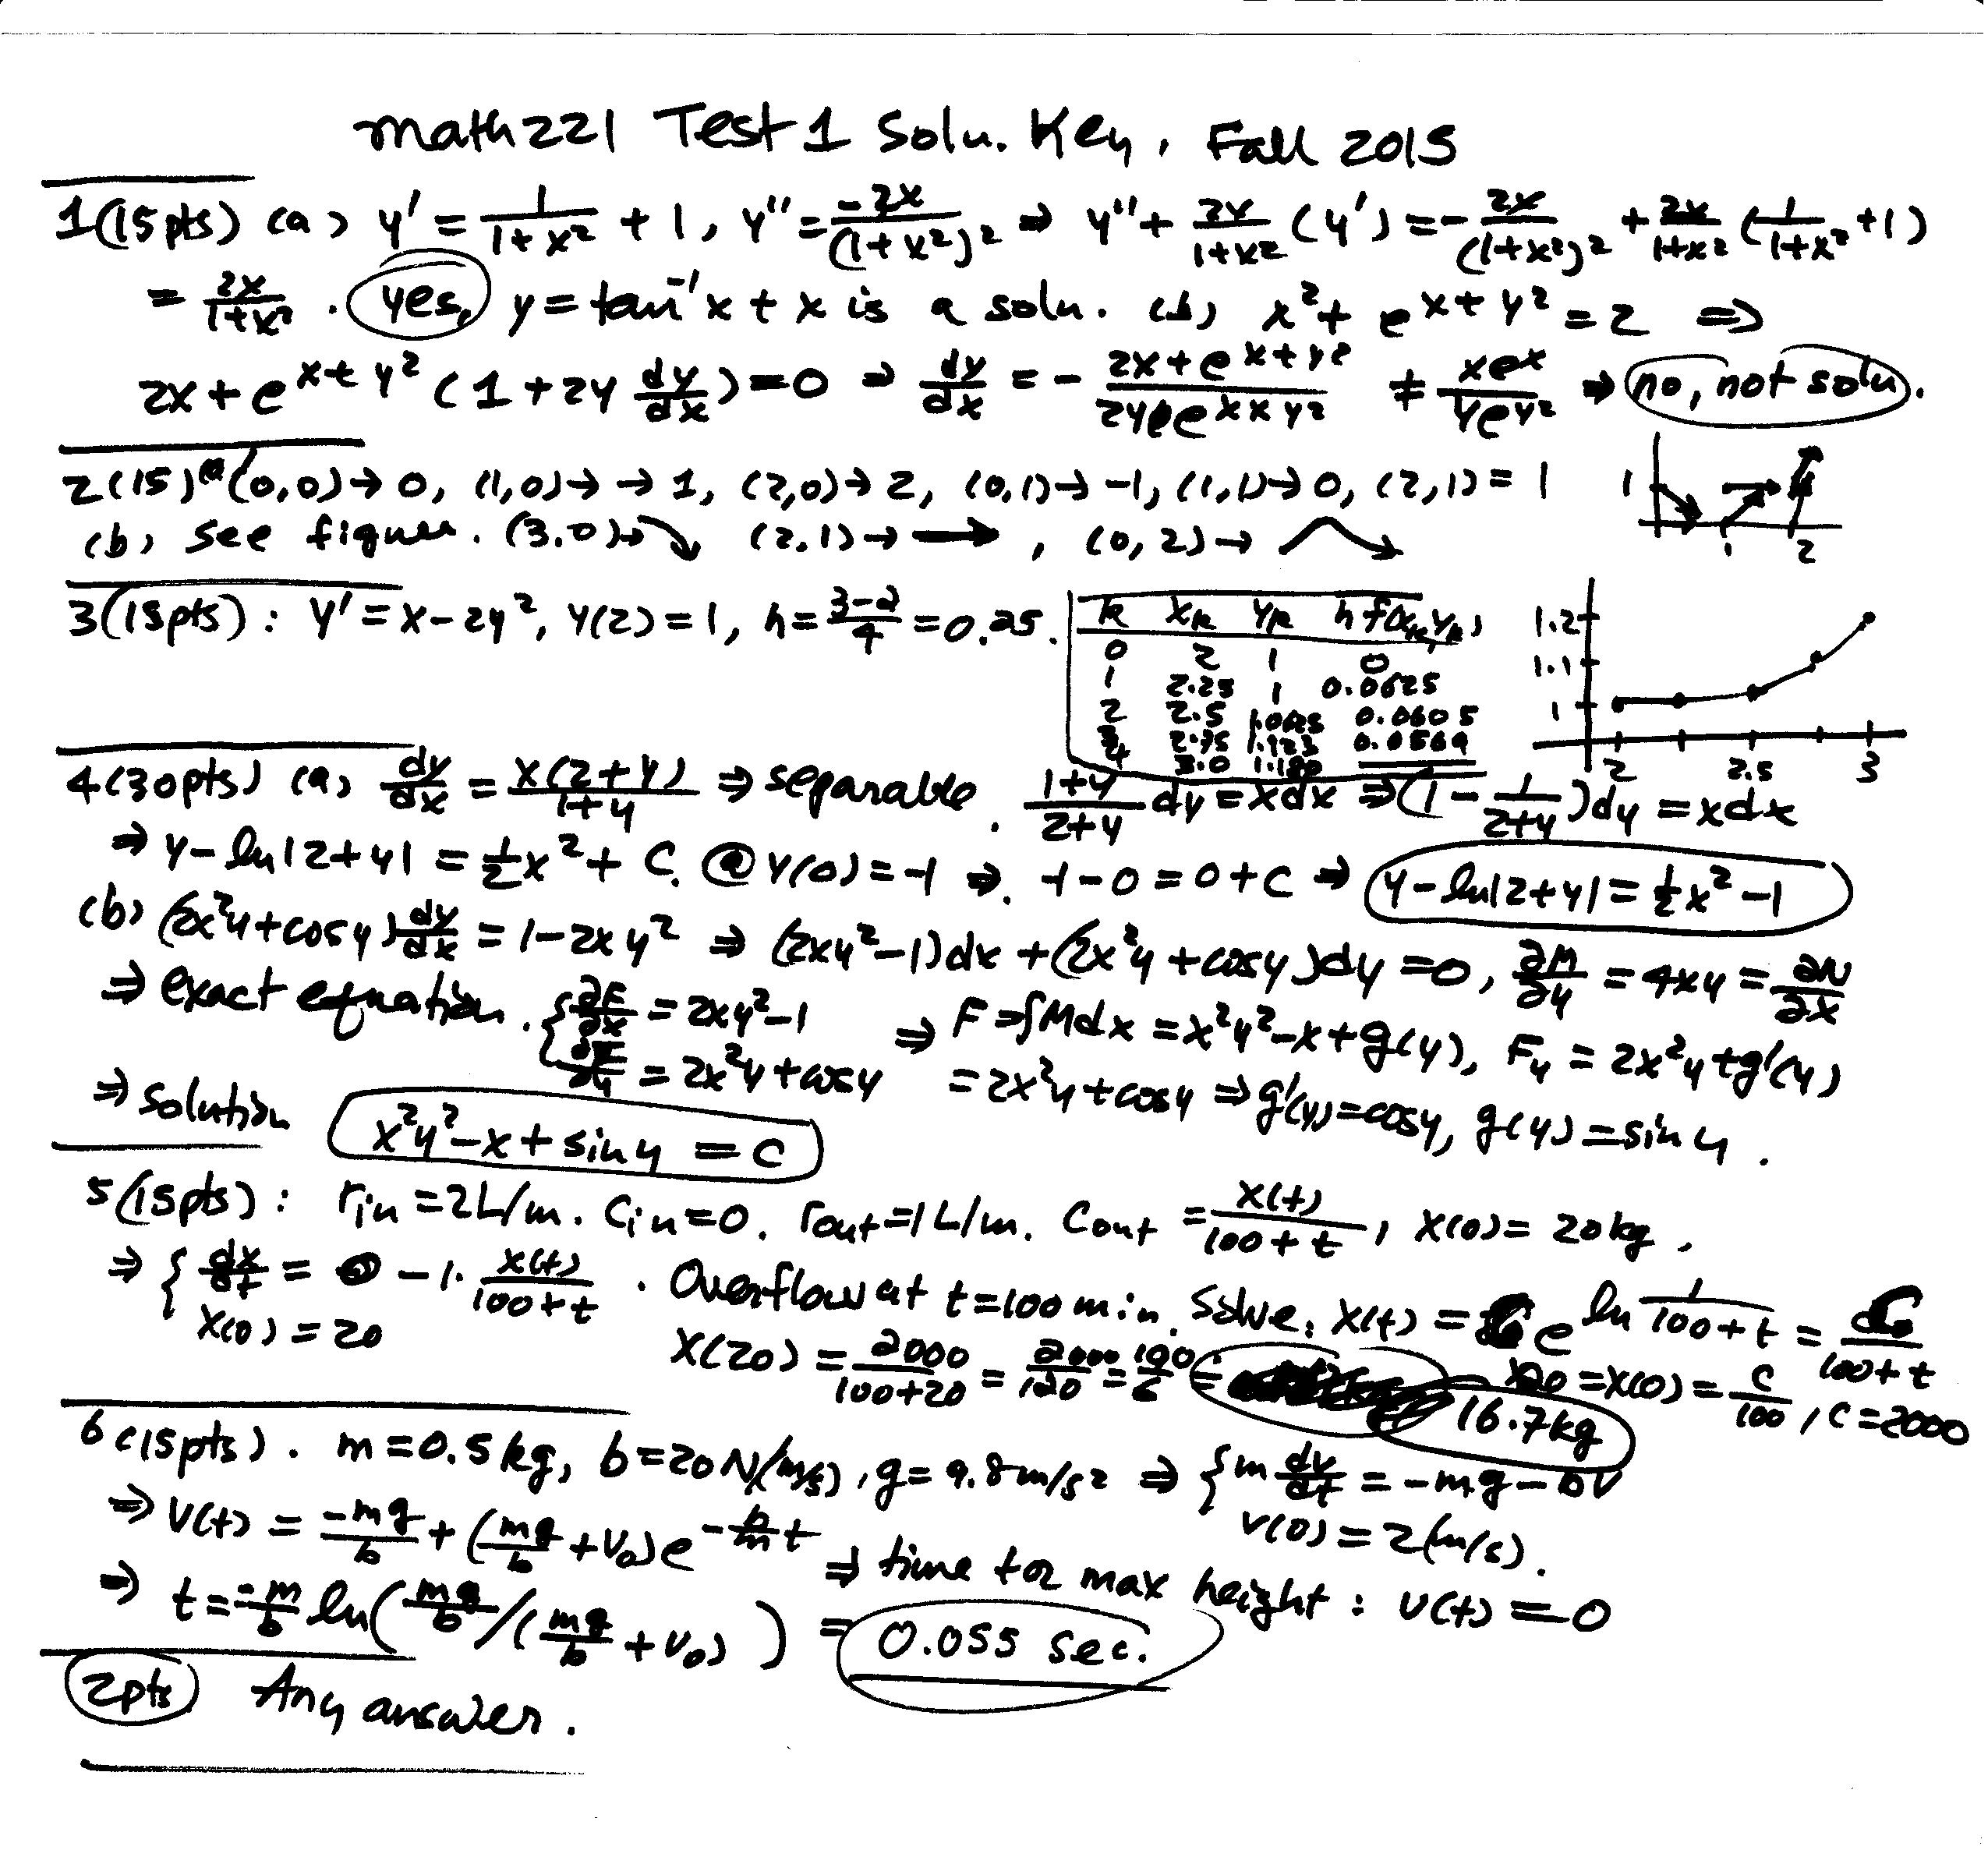 math 221 Test 1 Solu. Key, Fall 2015
1(15pts) (a) y' = 1/(1+x²) + 1, y'' = -2x/(1+x²)² ⇒ y'' + 2x/(1+x²) (y') = -2x/(1+x²)² + 2x/(1+x²) (1/(1+x²) + 1)
= 2x/(1+x²) . yes, y = tan⁻¹x + x is a solu. (b) x² + e^(x+y²) = 2 ⇒
2x + e^(x+y²) (1 + 2y dy/dx) = 0 ⇒ dy/dx = - (2x + e^(x+y²))/(2y e^(x+y²)) ≠ xe^x/(ye^(y²)) ⇒ no, not solu.
2(15) (a) (0,0)→0, (1,0)→→1, (2,0)→2, (0,1)→-1, (1,1)→0, (2,1)=1
1
1 2
(b) see figure. (3.0)→ (2,1)→ , (0,2)→
3(15pts): y' = x-2y², y(2)=1, h = (3-2)/4 = 0.25.
k x_k y_k h f(x_k, y_k)
0 2 1 0
1 2.25 1 0.0625
2 2.5 1.0625 0.0605
3 2.75 1.123 0.0569
4 3.0 1.180
1.2
1.1
1
2 2.5 3
4(30pts) (a) dy/dx = x(2+y)/(1+y) ⇒ separable. (1+y)/(2+y) dy = xdx ⇒ (1 - 1/(2+y))dy = xdx
⇒ y - ln|2+y| = ½x² + C. @ y(0)=-1 ⇒. -1-0=0+C ⇒ y - ln|2+y| = ½x² - 1
(b) (2x²y+cosy) dy/dx = 1-2xy² ⇒ (2xy²-1)dx + (2x²y+cosy)dy = 0, ∂M/∂y = 4xy = ∂N/∂x
⇒ exact equation. { ∂F/∂x = 2xy²-1 ⇒ F = ∫Mdx = x²y²-x+g(y), F_y = 2x²y+g'(y)
∂F/∂y = 2x²y+cosy = 2x²y+cosy ⇒ g'(y)=cosy, g(y)=siny.
⇒ solution x²y²-x+siny = C
5(15pts): r_in = 2L/m. C_in=0. r_out=1L/m. C_out = x(t)/(100+t), x(0)= 20kg,
⇒ { dx/dt = 0 - 1· x(t)/(100+t) . Overflow at t=100min. Solve: x(t) = C e^(ln 1/(100+t)) = C/(100+t)
x(0) = 20 x(20) = 2000/(100+20) = 2000/120 = 100/6 = 20 = x(0) = C/100, C=2000
16.7kg
6(15pts). m=0.5kg, b=20N/(m/s), g=9.8m/s² ⇒ { m dv/dt = -mg-bv
v(0) = 2(m/s).
⇒ v(t) = -mg/b + (mg/b + v₀)e^(-b/m t) ⇒ time for max height: v(t)=0
⇒ t = -m/b ln( mg/b /(mg/b + v₀) ) = 0.055 sec.
2pts Any answer.